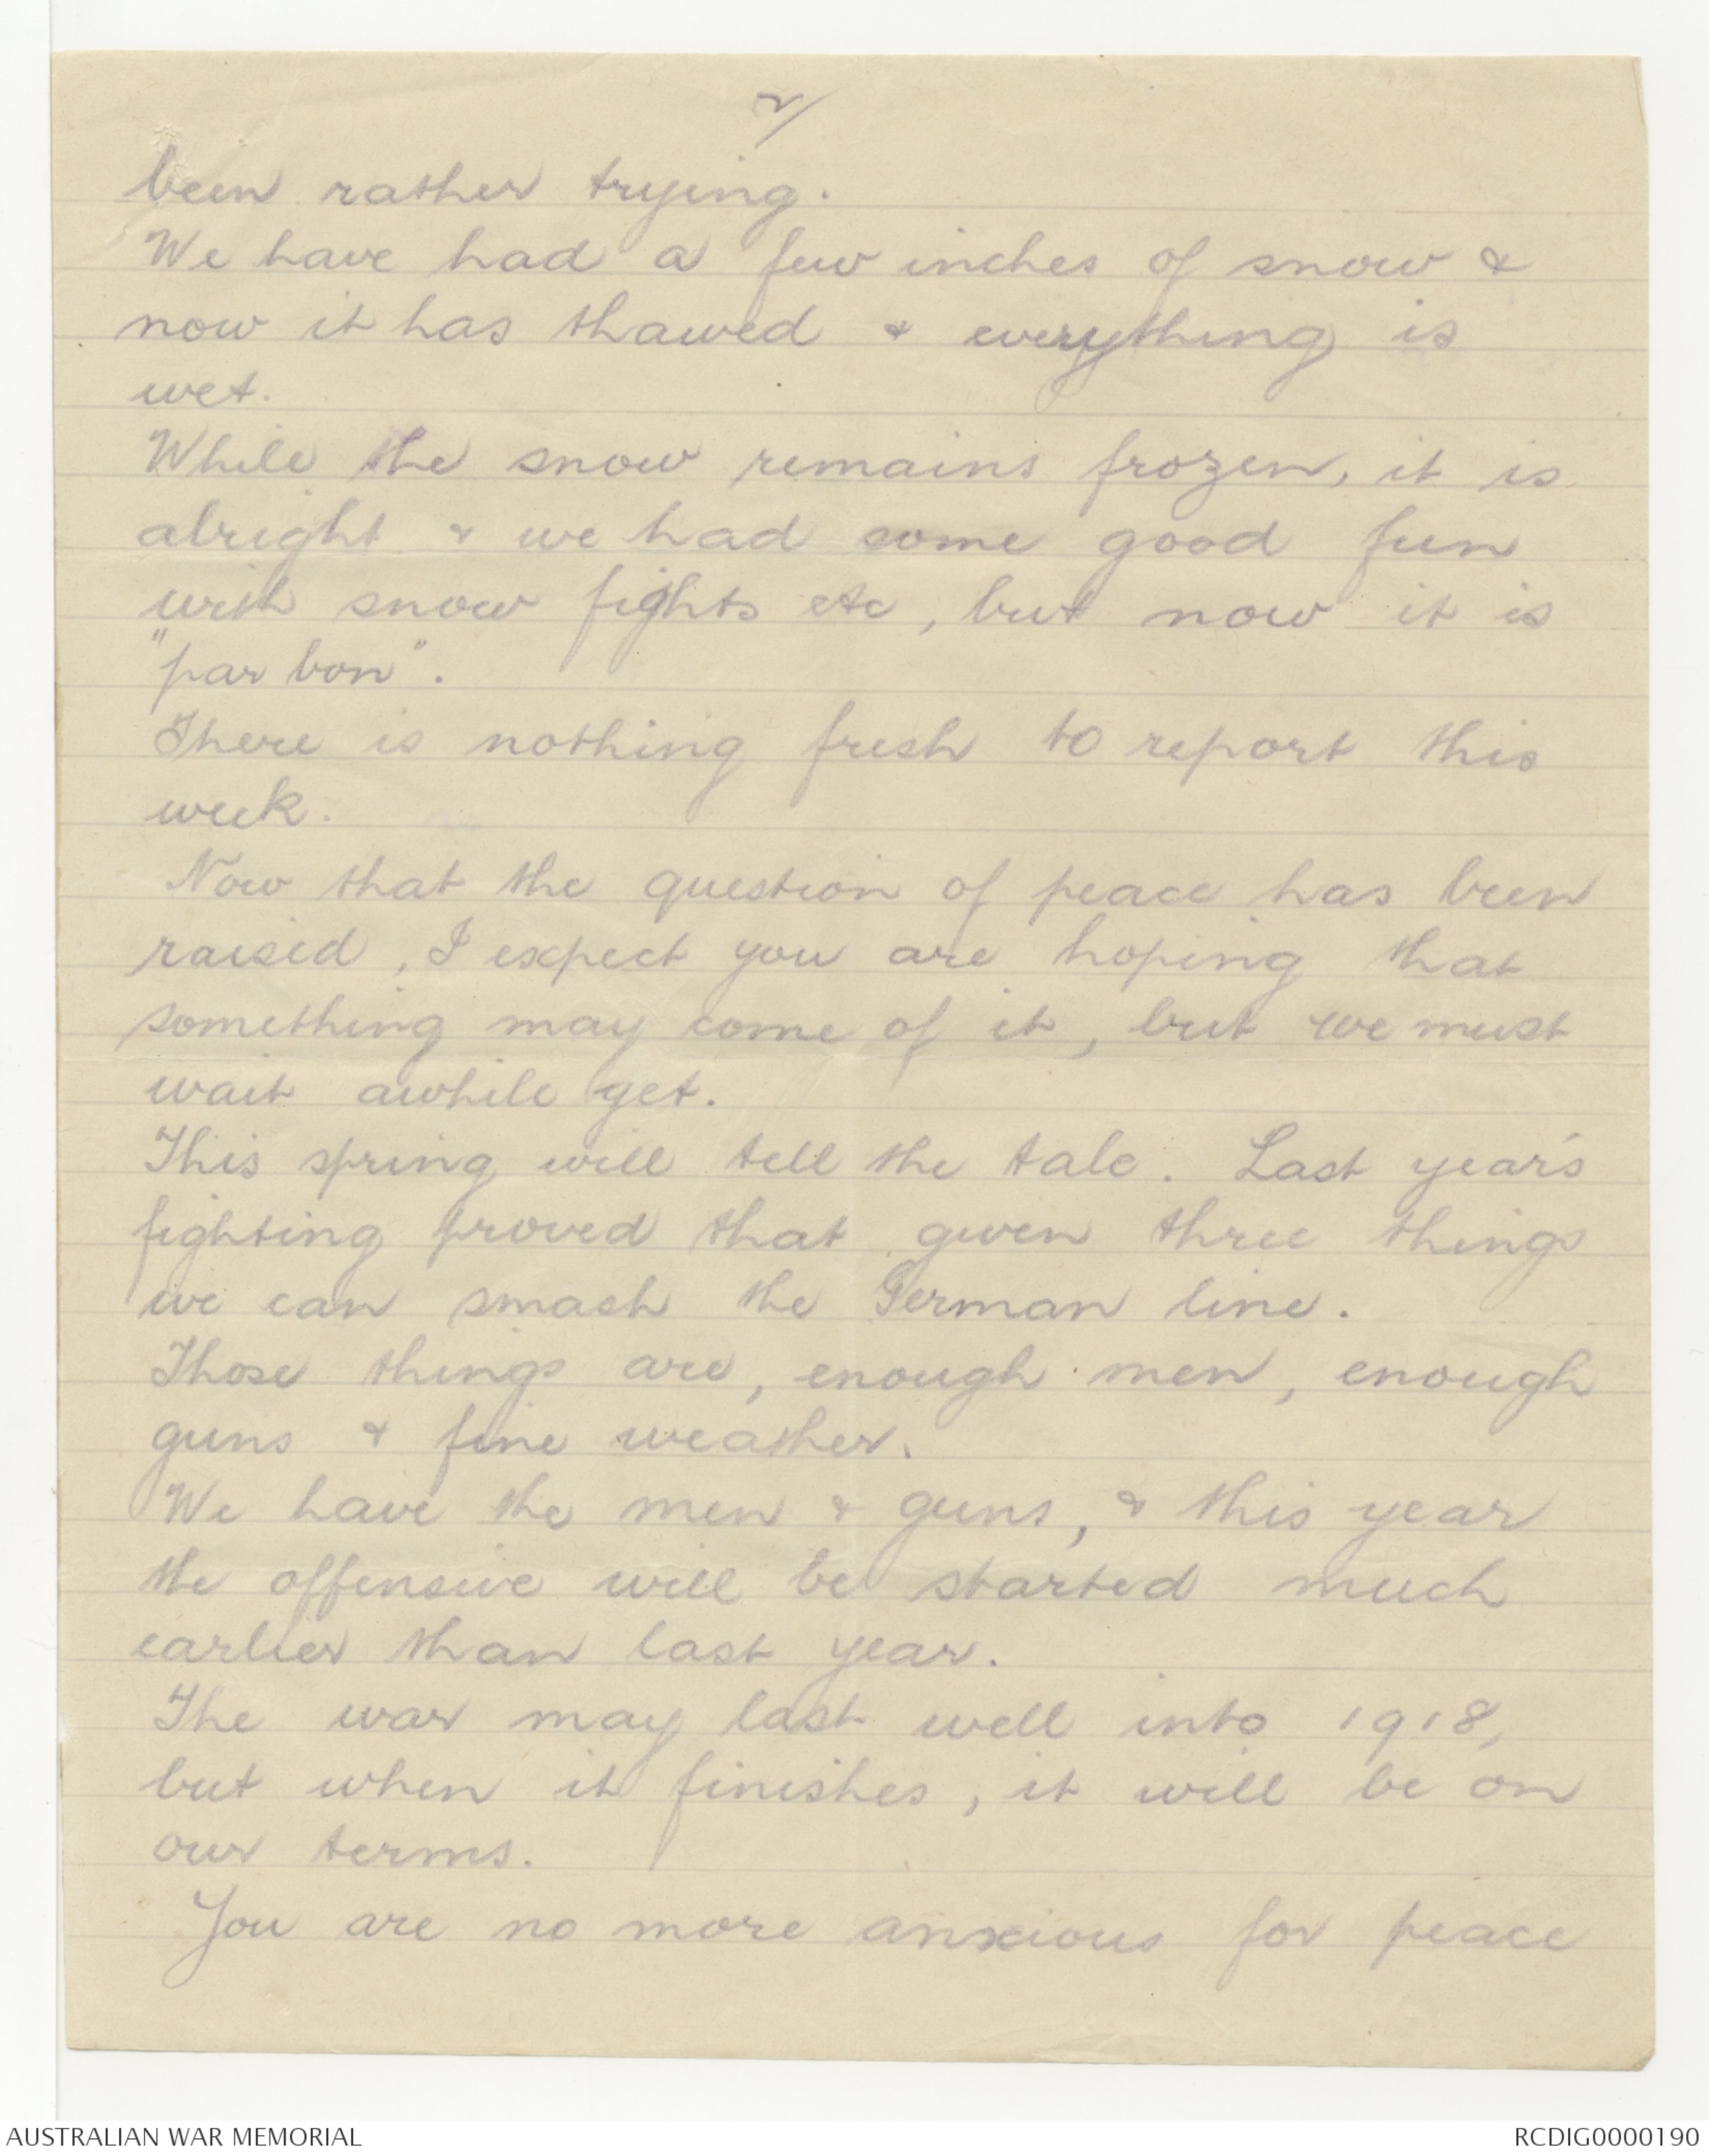 2/
been rather trying.
We have had a few inches of snow &
now it has thawed & everything is
wet.
While the snow remains frozen, it is
alright & we had some good fun
with snow fights etc, but now it is
"par bon".
There is nothing fresh to report this
week.
Now that the question of peace has been
raised, I expect you are hoping that
something may come of it, but we must
wait awhile yet.
This spring will tell the tale. Last year's
fighting proved that given three things
we can smash the German line.
Those things are, enough men, enough
guns & fine weather.
We have the men & guns, & this year
the offensive will be started much
earlier than last year.
The war may last well into 1918,
but when it finishes, it will be on
our terms.
You are no more anxious for peace
AUSTRALIAN WAR MEMORIAL
RCDIG0000190